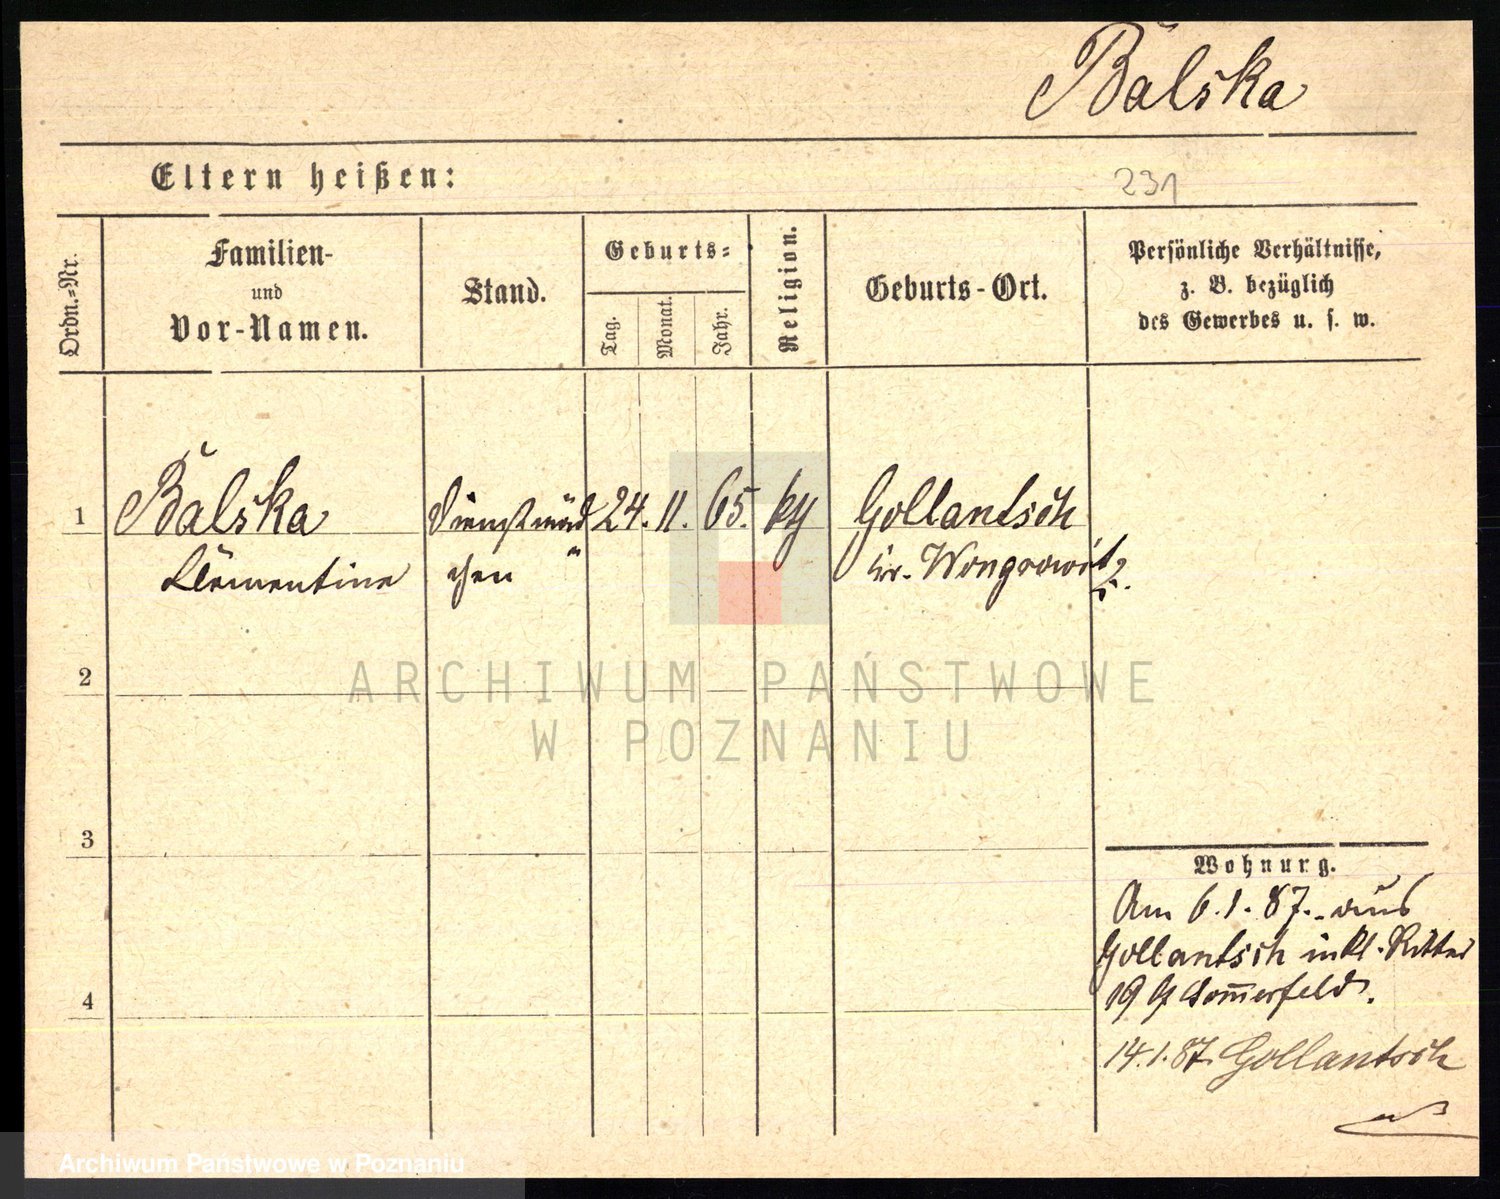 Balska
Eltern heißen:
231
Ordn.=Nr.
Familien-
und
Vor-Namen.
Stand.
Geburts=
Tag.
Monat.
Jahr.
Religion.
Geburts-Ort.
Persönliche Verhältnisse,
z. B. bezüglich
des Gewerbes u. s. w.
1
Balska
Dienstmäd
24. 11. 65.
Gollantsch
Clementine
chen
Kr. Wongrowitz
2
ARCHIWUM PAŃSTWOWE
W POZNANIU
3
Wohnung.
Am 6.1.87. aus
Gollantsch Ritter
19 b/ Sommerfeld.
4
14.1.87. Gollantsch
Archiwum Państwowe w Poznaniu